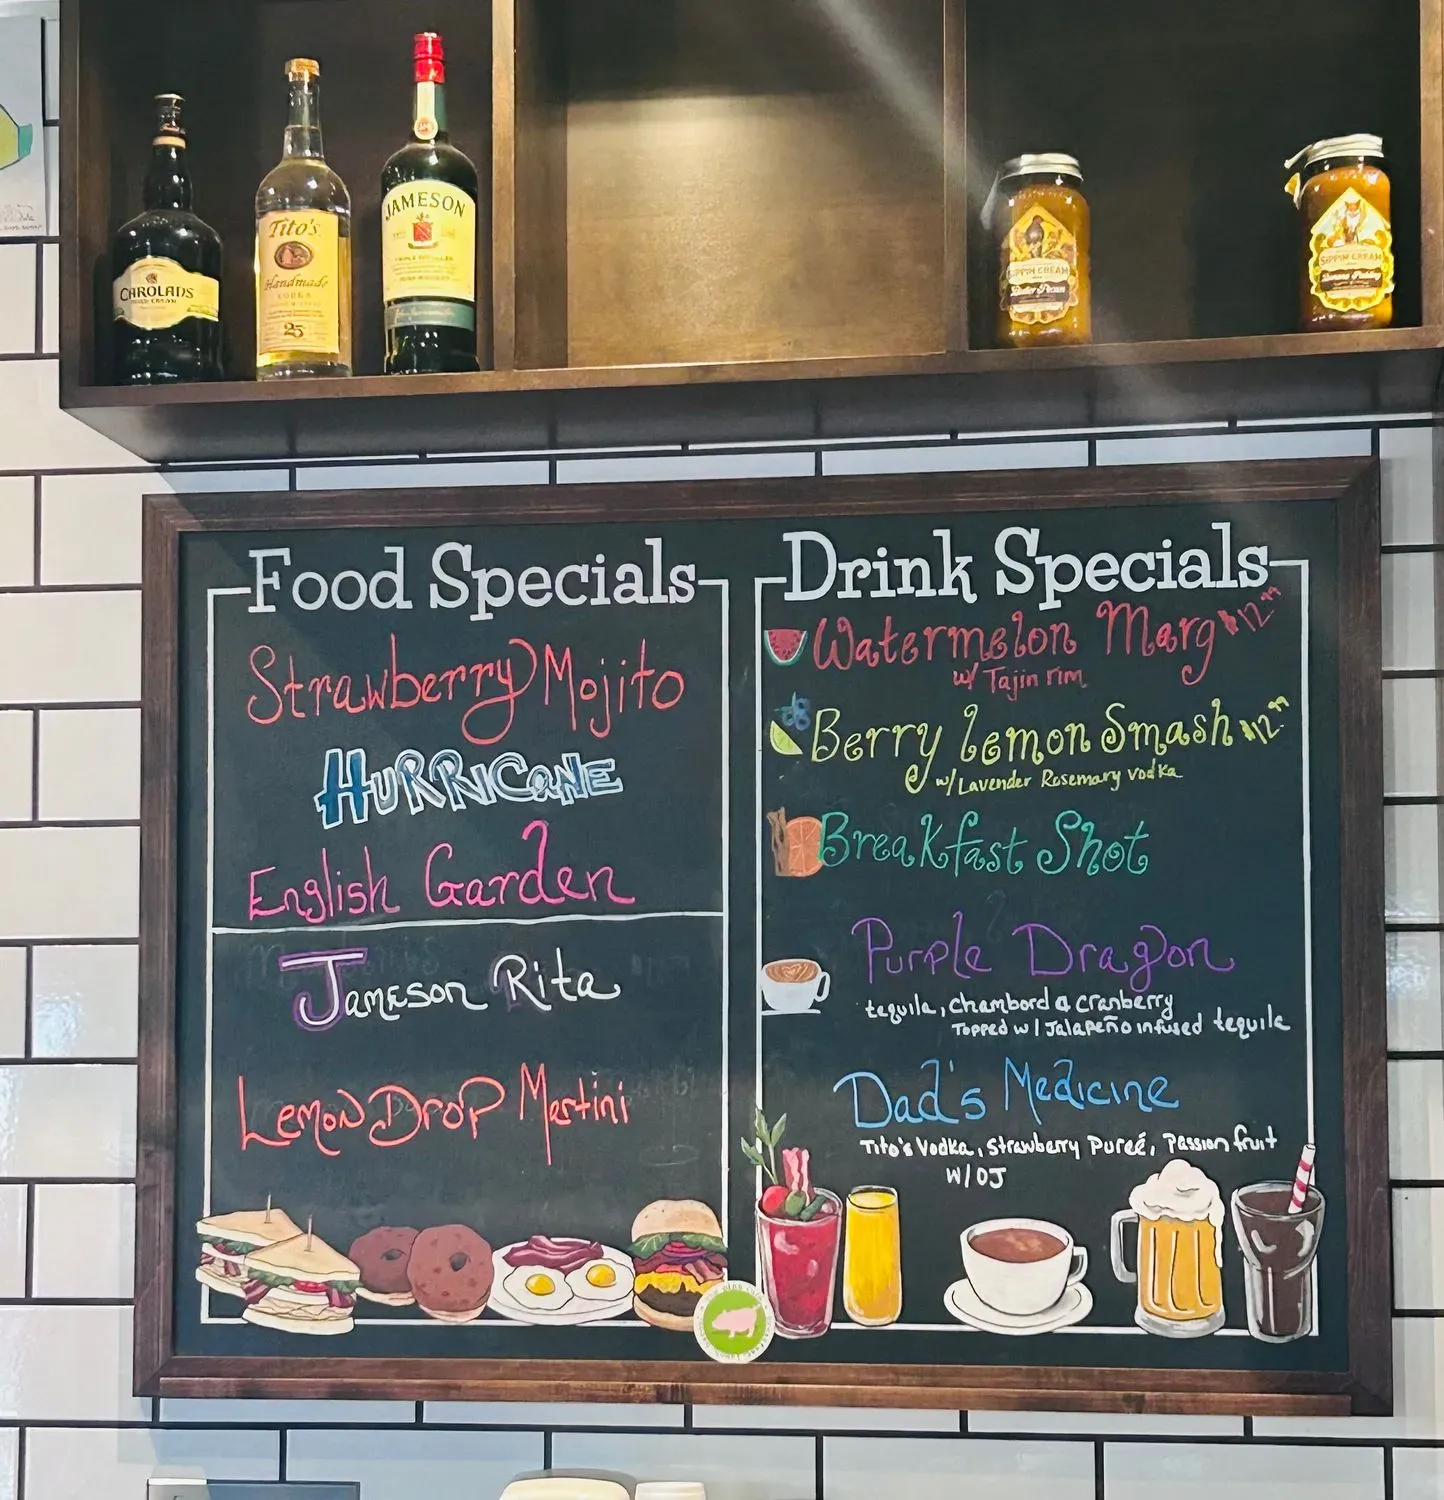 CAROLANS
Tito's
Handmade
VODKA
25
JAMESON
SIPPIN CREAM
SIPPIN CREAM
Banana Pudding
Food Specials
Strawberry Mojito
HURRICANE
English Garden
Jameson Rita
Lemon Drop Martini
Drink Specials
Watermelon Marg $12.99
w/ Tajin rim
Berry Lemon Smash $12.99
w/ Lavender Rosemary vodka
Breakfast Shot
Purple Dragon
tequila, Chambord & cranberry
Topped w/ Jalapeño infused tequila
Dad's Medicine
Tito's Vodka, Strawberry Pureé, Passion fruit
W/ OJ